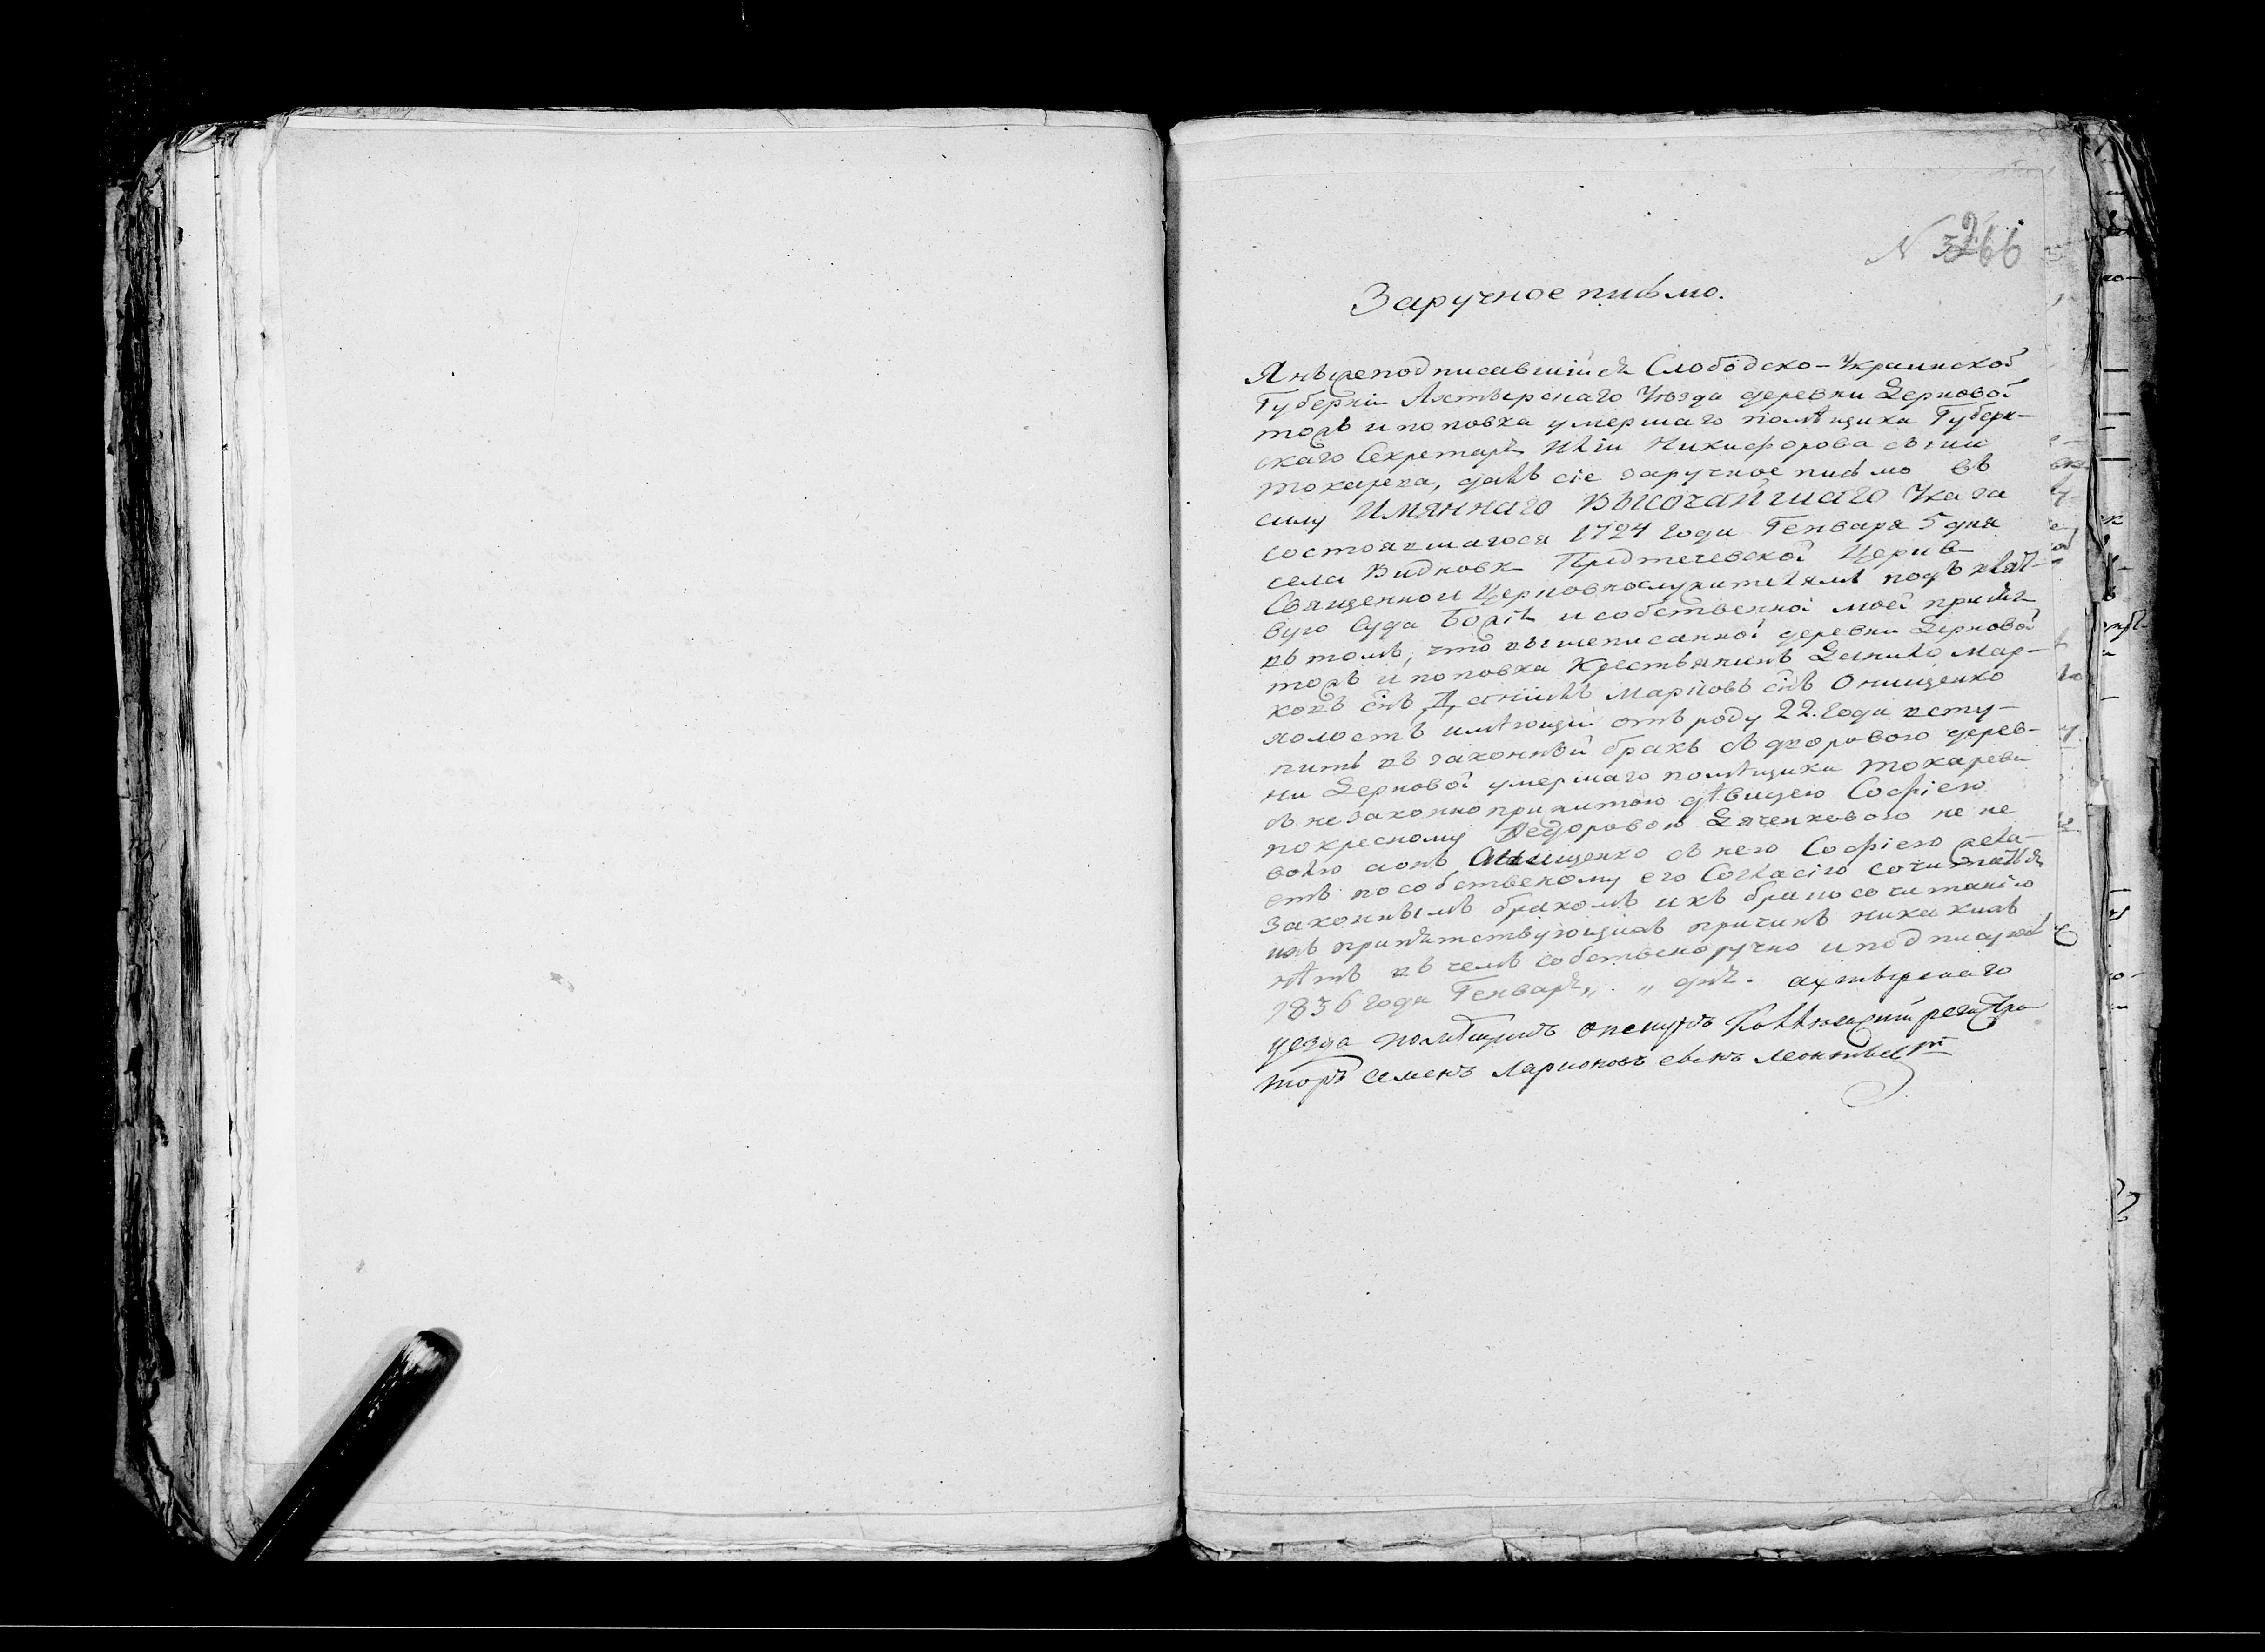 N 3266
Заручное письмо.
Я нижеподписавшійся Слободско-Украинской
Губерніи Ахтырскаго Уѣзда деревни Дерновой
тожъ и поповка умершаго помѣщика Губерн-
скаго Секретаря Никифорова
токарева, далъ сіе заручное письмо въ
силу Имяннаго Высочайшаго Указа
состоявшагося 1724 года Генваря 5 дня
села Предтечевской Церкв
Священно и Церковнослужителямъ подъ
вую Суда Божія и собственной моей
въ томъ, что вышеписанной деревни Дерновой
тожъ и поповка Крестьянинъ Данило Мар-
ковъ сн̃ъ Даніилъ Марковъ сн̃ъ Онищенко
холостъ имѣющій отъ роду 22. года всту-
пить въ законный бракъ съ дворовою дерев-
ни Дерновой умершаго помѣщика токарева
съ незаконноприжитою дѣвицею Софіею
покресному Федоровою Дяченковою не не
волю аонъ Онищенко съ нею Софіею жела-
етъ пособственому его Согласію сочитаться
Законнымъ бракомъ ихъ бракосочитанію
ихъ припятствующихъ причинъ никакихъ
нѣтъ въ чемъ собствено ручно и подписуюсь
1836 года Генваря „ „ дня. ахтырскаго
уезда помѣщикъ опекунъ Коллежскій регистра
торъ семенъ Ларионовъ сынъ Леонтьевъ